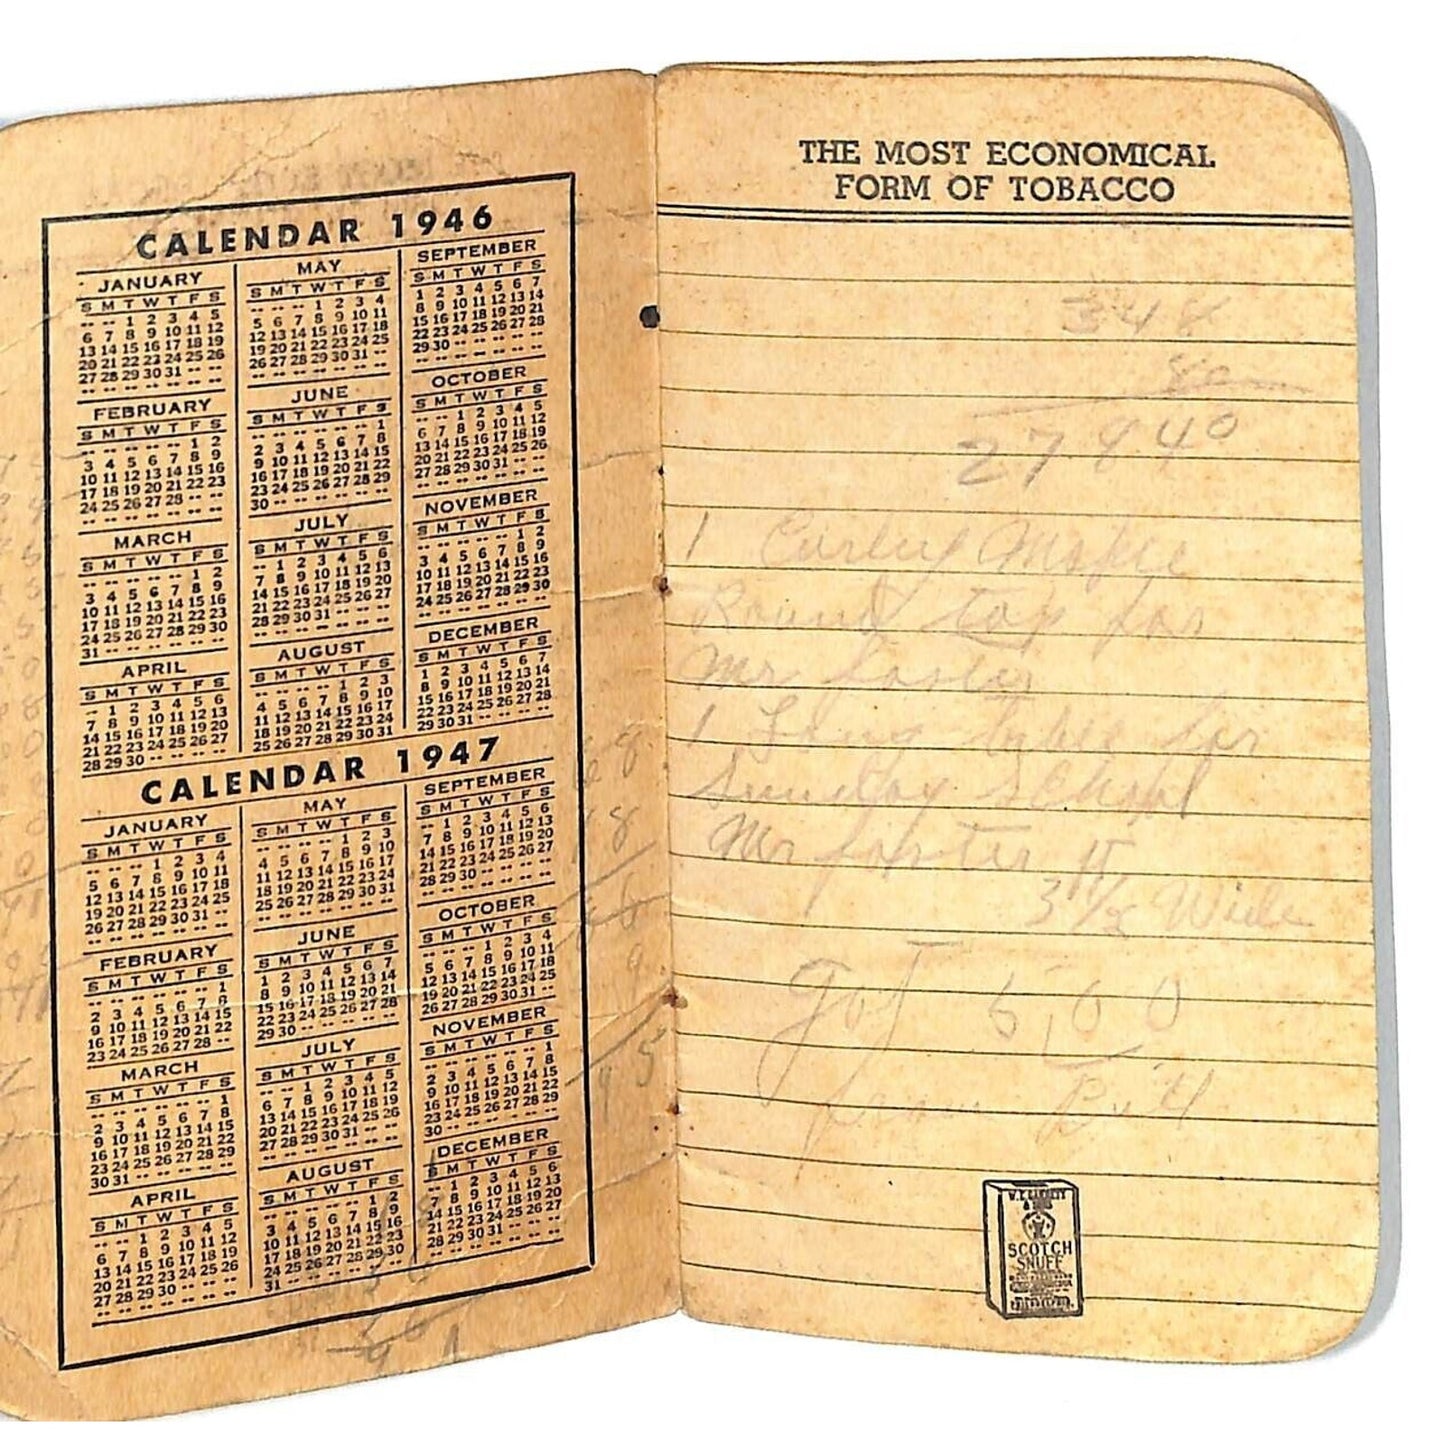 CALENDAR 1946
JANUARY
S M T W T F S
-- -- 1 2 3 4 5
6 7 8 9 10 11 12
13 14 15 16 17 18 19
20 21 22 23 24 25 26
27 28 29 30 31 -- --
-- -- -- -- -- -- --
FEBRUARY
S M T W T F S
-- -- -- -- -- 1 2
3 4 5 6 7 8 9
10 11 12 13 14 15 16
17 18 19 20 21 22 23
24 25 26 27 28 -- --
-- -- -- -- -- -- --
MARCH
S M T W T F S
-- -- -- -- -- 1 2
3 4 5 6 7 8 9
10 11 12 13 14 15 16
17 18 19 20 21 22 23
24 25 26 27 28 29 30
31 -- -- -- -- -- --
APRIL
S M T W T F S
-- 1 2 3 4 5 6
7 8 9 10 11 12 13
14 15 16 17 18 19 20
21 22 23 24 25 26 27
28 29 30 -- -- -- --
MAY
S M T W T F S
-- -- -- 1 2 3 4
5 6 7 8 9 10 11
12 13 14 15 16 17 18
19 20 21 22 23 24 25
26 27 28 29 30 31 --
-- -- -- -- -- -- --
JUNE
S M T W T F S
-- -- -- -- -- -- 1
2 3 4 5 6 7 8
9 10 11 12 13 14 15
16 17 18 19 20 21 22
23 24 25 26 27 28 29
30 -- -- -- -- -- --
JULY
S M T W T F S
-- 1 2 3 4 5 6
7 8 9 10 11 12 13
14 15 16 17 18 19 20
21 22 23 24 25 26 27
28 29 30 31 -- -- --
-- -- -- -- -- -- --
AUGUST
S M T W T F S
-- -- -- -- 1 2 3
4 5 6 7 8 9 10
11 12 13 14 15 16 17
18 19 20 21 22 23 24
25 26 27 28 29 30 31
SEPTEMBER
S M T W T F S
1 2 3 4 5 6 7
8 9 10 11 12 13 14
15 16 17 18 19 20 21
22 23 24 25 26 27 28
29 30 -- -- -- -- --
-- -- -- -- -- -- --
OCTOBER
S M T W T F S
-- -- 1 2 3 4 5
6 7 8 9 10 11 12
13 14 15 16 17 18 19
20 21 22 23 24 25 26
27 28 29 30 31 -- --
-- -- -- -- -- -- --
NOVEMBER
S M T W T F S
-- -- -- -- -- 1 2
3 4 5 6 7 8 9
10 11 12 13 14 15 16
17 18 19 20 21 22 23
24 25 26 27 28 29 30
-- -- -- -- -- -- --
DECEMBER
S M T W T F S
1 2 3 4 5 6 7
8 9 10 11 12 13 14
15 16 17 18 19 20 21
22 23 24 25 26 27 28
29 30 31 -- -- -- --
CALENDAR 1947
JANUARY
S M T W T F S
-- -- -- 1 2 3 4
5 6 7 8 9 10 11
12 13 14 15 16 17 18
19 20 21 22 23 24 25
26 27 28 29 30 31 --
-- -- -- -- -- -- --
FEBRUARY
S M T W T F S
-- -- -- -- -- -- 1
2 3 4 5 6 7 8
9 10 11 12 13 14 15
16 17 18 19 20 21 22
23 24 25 26 27 28 --
MARCH
S M T W T F S
-- -- -- -- -- -- 1
2 3 4 5 6 7 8
9 10 11 12 13 14 15
16 17 18 19 20 21 22
23 24 25 26 27 28 29
30 31 -- -- -- -- --
APRIL
S M T W T F S
-- -- 1 2 3 4 5
6 7 8 9 10 11 12
13 14 15 16 17 18 19
20 21 22 23 24 25 26
27 28 29 30 -- -- --
-- -- -- -- -- -- --
MAY
S M T W T F S
-- -- -- -- 1 2 3
4 5 6 7 8 9 10
11 12 13 14 15 16 17
18 19 20 21 22 23 24
25 26 27 28 29 30 31
-- -- -- -- -- -- --
JUNE
S M T W T F S
1 2 3 4 5 6 7
8 9 10 11 12 13 14
15 16 17 18 19 20 21
22 23 24 25 26 27 28
29 30 -- -- -- -- --
JULY
S M T W T F S
-- -- 1 2 3 4 5
6 7 8 9 10 11 12
13 14 15 16 17 18 19
20 21 22 23 24 25 26
27 28 29 30 31 -- --
AUGUST
S M T W T F S
-- -- -- -- -- 1 2
3 4 5 6 7 8 9
10 11 12 13 14 15 16
17 18 19 20 21 22 23
24 25 26 27 28 29 30
31 -- -- -- -- -- --
SEPTEMBER
S M T W T F S
-- 1 2 3 4 5 6
7 8 9 10 11 12 13
14 15 16 17 18 19 20
21 22 23 24 25 26 27
28 29 30 -- -- -- --
-- -- -- -- -- -- --
OCTOBER
S M T W T F S
-- -- -- 1 2 3 4
5 6 7 8 9 10 11
12 13 14 15 16 17 18
19 20 21 22 23 24 25
26 27 28 29 30 31 --
NOVEMBER
S M T W T F S
-- -- -- -- -- -- 1
2 3 4 5 6 7 8
9 10 11 12 13 14 15
16 17 18 19 20 21 22
23 24 25 26 27 28 29
30 -- -- -- -- -- --
DECEMBER
S M T W T F S
-- 1 2 3 4 5 6
7 8 9 10 11 12 13
14 15 16 17 18 19 20
21 22 23 24 25 26 27
28 29 30 31 -- -- --
THE MOST ECONOMICAL
FORM OF TOBACCO
348
80
27840
1 Curley Maple
Round top for
Mr foster
1 Long table for
Sunday School
Mr foster
3 1/2 Wide
got 6,00
from
SCOTCH
SNUFF